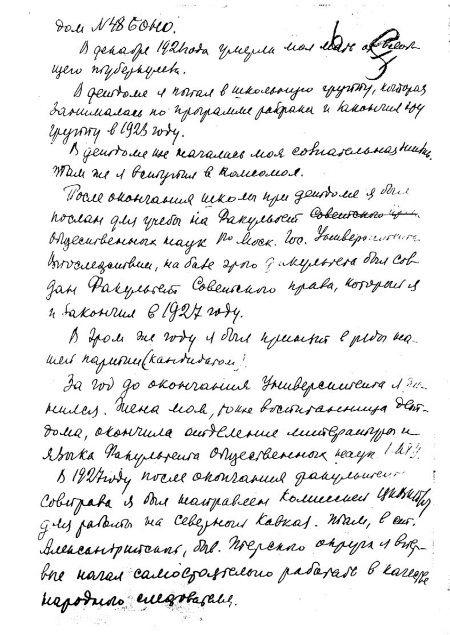 дом № 48 БОНО.
В декабре 1921 года умерла моя мать от
щего туберкулеза.
В детдоме я попал в школьную группу, которая
занималась по программе рабфака и закончил эту
группу в 1923 году.
В детдоме же началась моя сознательная жизнь.
Там же я вступил в комсомол.
После окончания школы при детдоме я был
послан для учебы на Факультет Советского
общественных наук Моск. Гос. Университета.
Впоследствии, на базе этого факультета был соз-
дан Факультет Советского права, который я
и закончил в 1927 году.
В этом же году я был принят в ряды на-
шей партии (кандидатом)
За год до окончания Университета я же-
нился. Жена моя, тоже воспитанница дет-
дома, окончила отделение литературы и
языка Факультета общественных наук 1 МГУ.
В 1927 году после окончания факультета
совправа я был направлен комиссией
для работы на Северный Кавказ. Там, в ст.
Александрийской, быв. Терского округа я впер-
вые начал самостоятельно работать в качестве
народного следователя.